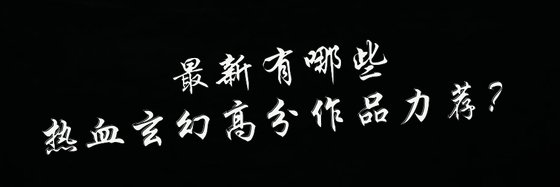 最新有哪些
热血玄幻高分作品力荐？